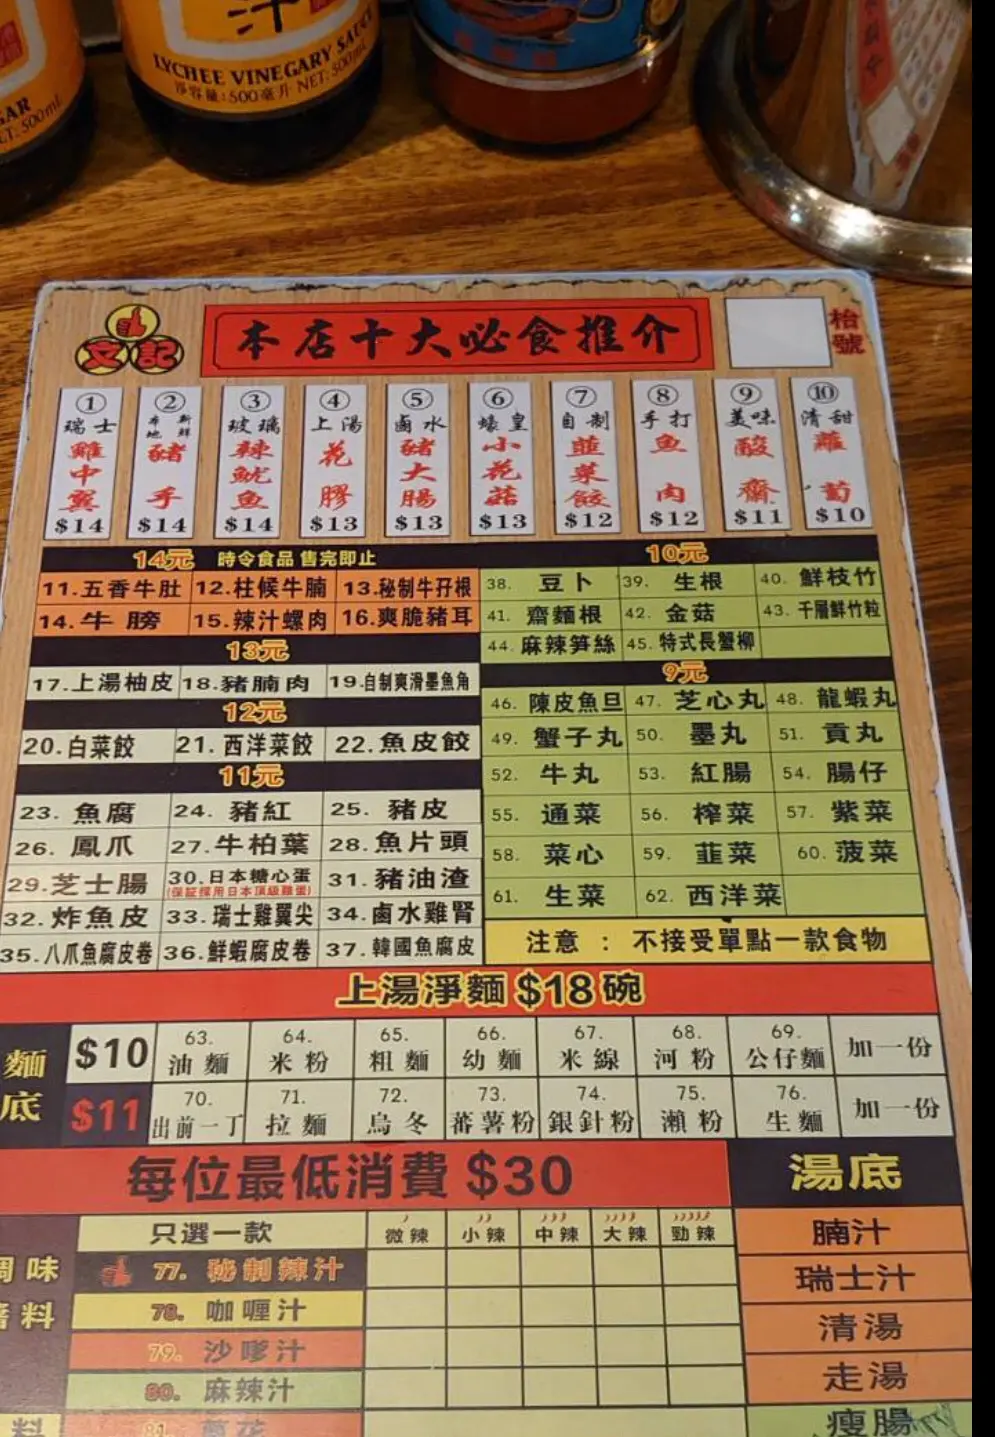 汁
LYCHEE VINEGARY SAUCE
淨容量:500毫升 NET: 500ml
GAR
ET: 500ml
文記
本店十大必食推介
枱號
① 瑞士雞中翼 $14
② 新鮮本地豬手 $14
③ 玻璃辣魷魚 $14
④ 上湯花膠 $13
⑤ 鹵水豬大腸 $13
⑥ 蠔皇小花菇 $13
⑦ 自制韮菜餃 $12
⑧ 手打魚肉 $12
⑨ 美味酸齋 $11
⑩ 清甜蘿蔔 $10
14元 時令食品 售完即止
11.五香牛肚 12.柱候牛腩 13.秘制牛孖根
14.牛膀 15.辣汁螺肉 16.爽脆豬耳
13元
17.上湯柚皮 18.豬腩肉 19.自制爽滑墨魚角
12元
20.白菜餃 21.西洋菜餃 22.魚皮餃
11元
23.魚腐 24.豬紅 25.豬皮
26.鳳爪 27.牛柏葉 28.魚片頭
29.芝士腸 30.日本糖心蛋 31.豬油渣
(保証採用日本頂級雞蛋)
32.炸魚皮 33.瑞士雞翼尖 34.鹵水雞腎
35.八爪魚腐皮卷 36.鮮蝦腐皮卷 37.韓國魚腐皮
10元
38. 豆卜 39. 生根 40. 鮮枝竹
41. 齋麵根 42. 金菇 43. 千層鮮竹粒
44. 麻辣笋絲 45. 特式長蟹柳
9元
46. 陳皮魚旦 47. 芝心丸 48. 龍蝦丸
49. 蟹子丸 50. 墨丸 51. 貢丸
52. 牛丸 53. 紅腸 54. 腸仔
55. 通菜 56. 榨菜 57. 紫菜
58. 菜心 59. 韮菜 60. 菠菜
61. 生菜 62. 西洋菜
注意 : 不接受單點一款食物
上湯淨麵 $18碗
麵底
$10 63.油麵 64.米粉 65.粗麵 66.幼麵 67.米線 68.河粉 69.公仔麵 加一份
$11 70.出前一丁 71.拉麵 72.烏冬 73.蕃薯粉 74.銀針粉 75.瀨粉 76.生麵 加一份
每位最低消費 $30
湯底
只選一款 微辣 小辣 中辣 大辣 勁辣
調味醬料
77. 秘制辣汁
78. 咖喱汁
79. 沙嗲汁
80. 麻辣汁
81.
料
腩汁
瑞士汁
清湯
走湯
瘦腸